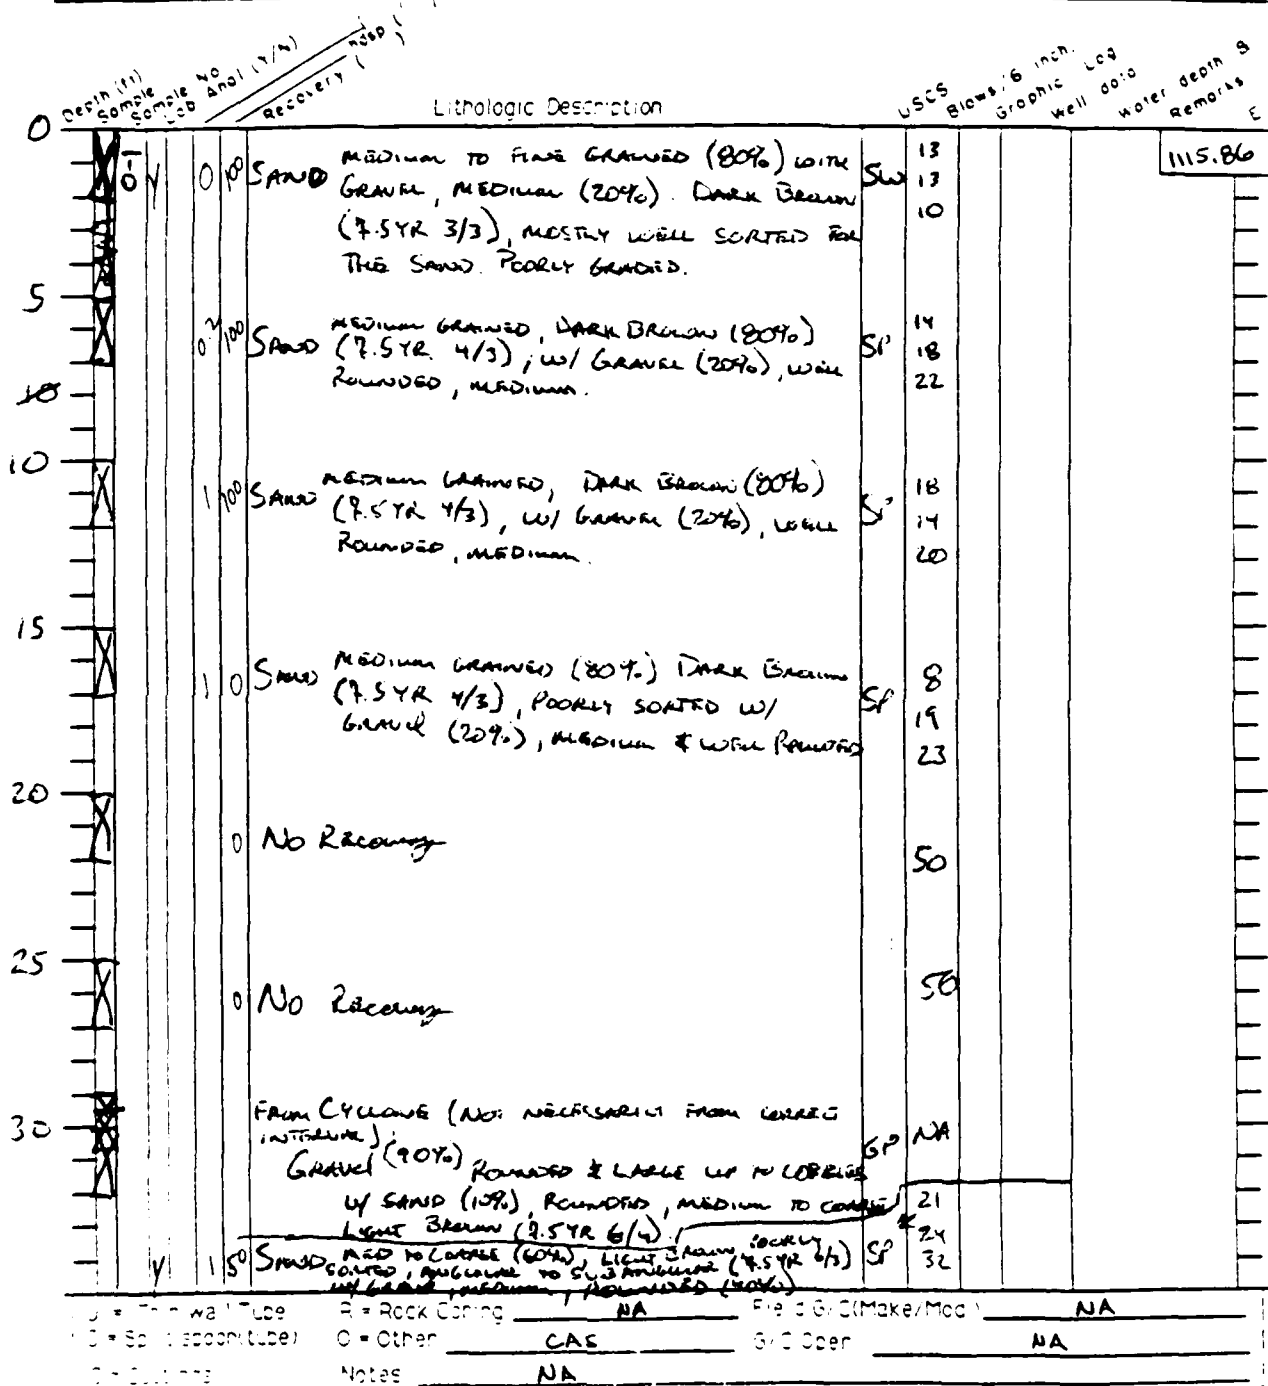 Depth (ft)
Sample
Sample No
Lab Anal (Y/N)
Recovery ( )
Lithologic Description
USCS
Blows/6 inch.
Graphic Log
Well data
Water depth &
Remarks
E
0
0-1
Y
0
100
SAND MEDIUM TO FINE GRAINED (80%) WITH
GRAVEL, MEDIUM (20%). DARK BROWN
(7.5YR 3/3), MOSTLY WELL SORTED FOR
THE SAND. POORLY GRADED.
SW
13
13
10
1115.86
5
0.2
100
SAND MEDIUM GRAINED, DARK BROWN (80%)
(7.5YR 4/3), W/ GRAVEL (20%), WELL
ROUNDED, MEDIUM.
SP
14
18
22
10
1
100
SAND MEDIUM GRAINED, DARK BROWN (80%)
(7.5YR 4/3), W/ GRAVEL (20%), WELL
ROUNDED, MEDIUM.
SP
18
14
20
15
1
0
SAND MEDIUM GRAINED (80%) DARK BROWN
(7.5YR 4/3), POORLY SORTED W/
GRAVEL (20%), MEDIUM & WELL ROUNDED
SP
8
19
23
20
0
No Recovery
50
25
0
No Recovery
50
30
FROM CYCLONE (NOT NECESSARILY FROM CORRECT
INTERVAL).
GRAVEL (90%) ROUNDED & LARGE UP TO COBBLES
W/ SAND (10%), ROUNDED, MEDIUM TO COARSE
LIGHT BROWN (7.5YR 6/4).
GP
NA
21
24
32
Y
1
50
SAND MED TO COARSE (60%), LIGHT BROWN (7.5YR 6/3) POORLY
SORTED, ANGULAR TO SUBANGULAR
W/ GRAVEL, MEDIUM, ROUNDED (40%)
SP
= Thin wall Tube R = Rock Coring NA Field G/C(Make/Mod) NA
= Split spoon(tube) O = Other CAS G/C Oper NA
Notes NA